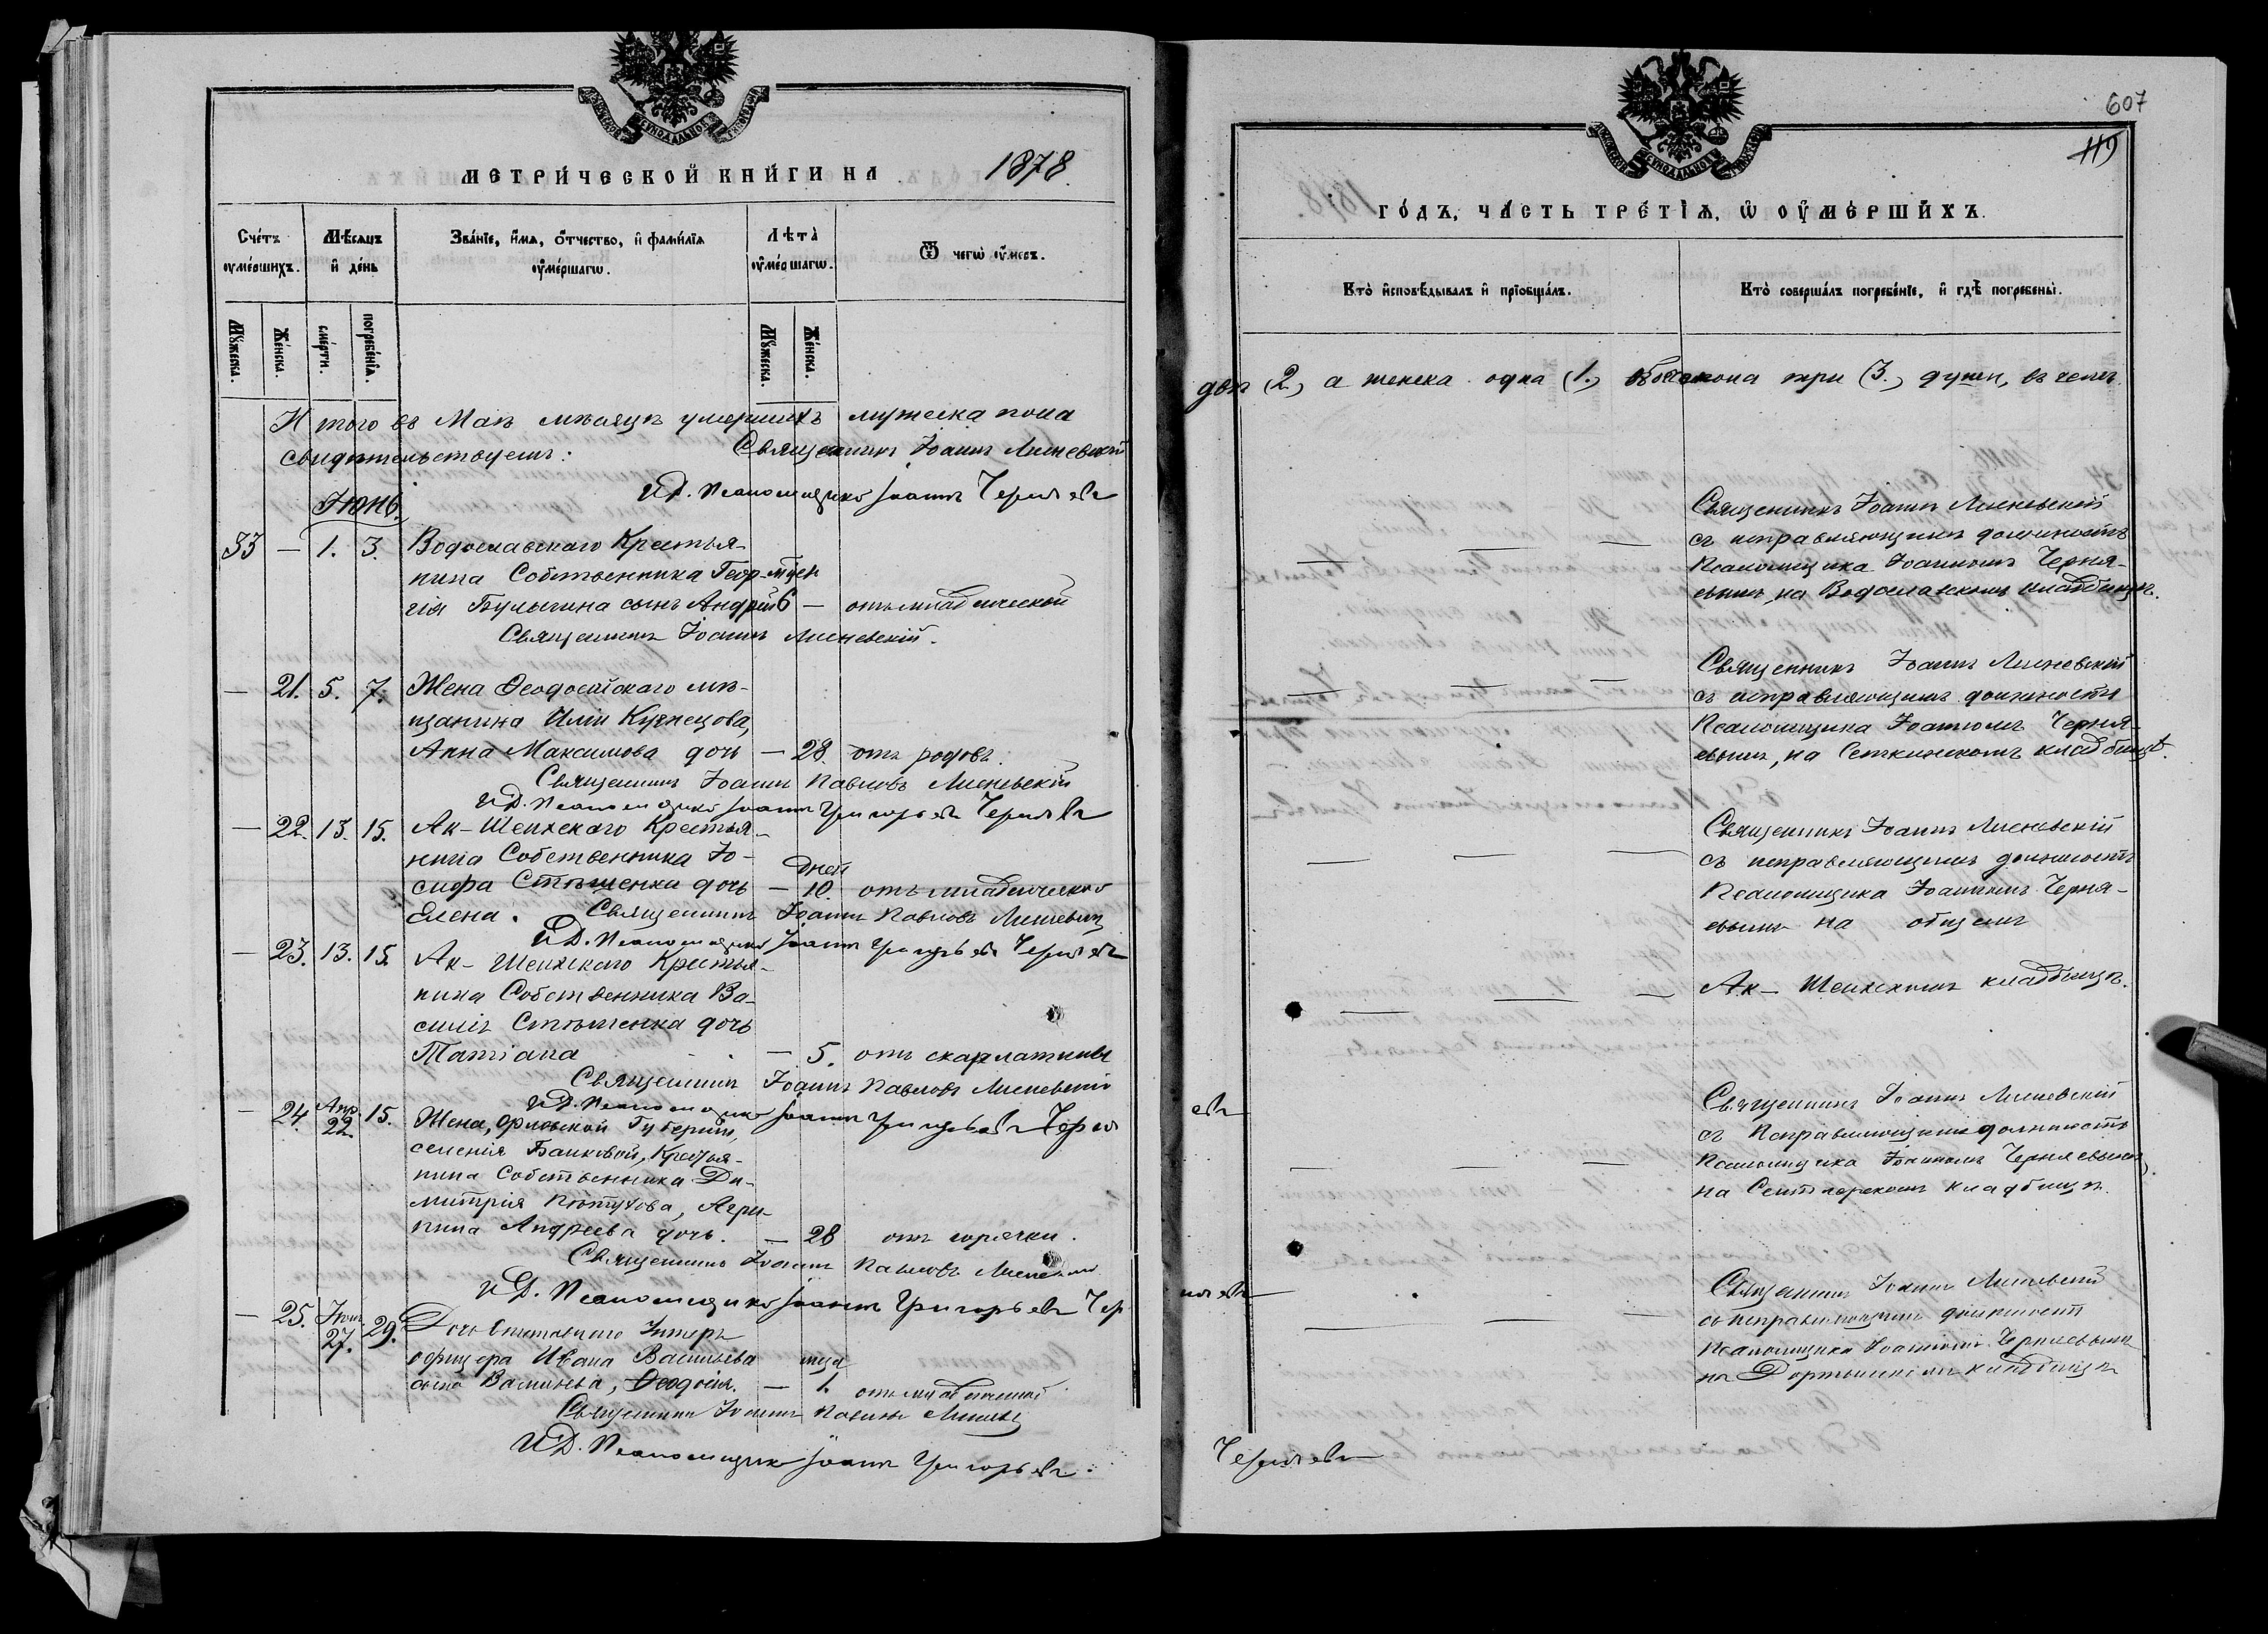 МЕТРИЧЕСКОЙ КНИГИ НА 1878
Счетъ умершихъ.
Мѣсяцъ и день
Званіе, имя, отчество, и фамилія умершаго.
Лѣта умершаго.
Ѿ чего умеръ.
Мужеска.
Женска.
смерти.
погребенія.
Мужеска.
Женска.
Итого въ Маѣ мѣсяцѣ умершихъ мужеска пола
свидѣтельствуемъ: Священникъ Іоаннъ
И.Д. Псаломщика Іоаннъ Черняевъ
Іюнь.
33 — 1. 3. Водославскаго Крестья-
нина Собственника Геор-
гія Булыгина сынъ Андрей 6 — отъ младенческой
Священникъ Іоаннъ
— 21. 5. 7. Жена Ѳеодосійскаго мѣ-
щанина Иліи Кузнецова,
Анна Максимова дочь — 28. отъ родовъ.
Священникъ Іоаннъ Павловъ
И.Д. Псаломщика Іоаннъ Григорьевъ Черняевъ
— 22. 13. 15. Ак-Шеихскаго Крестья-
нина Собственника Іо-
дней
сифа Стѣшенка дочь — 10. отъ младенческой
Елена. Священникъ Іоаннъ Павловъ
И.Д. Псаломщика Іоаннъ Григорьевъ Черняевъ
— 23. 13. 15. Ак-Шеихскаго Крестья-
нина Собственника Ва-
силія Стѣшенка дочь
Татіана — 5. отъ скарлатины
Священникъ Іоаннъ Павловъ
И.Д. Псаломщика Іоаннъ Григорьевъ Черня
— 24. Апр. 22. 15. Жена, Орловской Губерніи,
селенія Крестья-
нина Собственника Ди-
митрія Агри-
пина Андреева дочь. — 28 отъ горячки.
Священникъ Іоаннъ Павловъ
И.Д. Псаломщика Іоаннъ Григорьевъ Чер
— 25. Іюн. 27. 29. Дочь Унтеръ
офицера Ивана Васильева мца
сына Васильева, Ѳеодосія. — 1. отъ младенческой
Священникъ Іоаннъ Павловъ
И.Д. Псаломщика Іоаннъ Григорьевъ
607
119
ГОДЪ, ЧАСТЬ ТРЕТІЯ, Ѡ УМЕРШИХЪ.
Кто исповѣдывалъ и пріобщалъ.
Кто совершалъ погребеніе, и гдѣ погребены.
два (2) а женска одна (1.) обоего пола три (3.) души, въ чемъ
Священникъ Іоаннъ
съ исправляющимъ должность
Псаломщика Іоанномъ Черня-
евымъ, на Водославскомъ кладбищѣ.
Священникъ Іоаннъ
съ исправляющимъ должность
Псаломщика Іоанномъ Черня-
евымъ, на кладбищѣ.
Священникъ Іоаннъ
съ исправляющимъ должность
Псаломщика Іоанномъ Черня-
евымъ на общемъ
Ак-Шеихскомъ кладбищѣ.
евъ
Священникъ Іоаннъ
съ исправляющимъ должность
Псаломщика Іоанномъ Черняевымъ,
на кладбищѣ.
няевъ
Священникъ Іоаннъ
съ исправляющимъ должность
Псаломщика Іоанномъ Черняевымъ
на кладбищѣ
Черняевъ